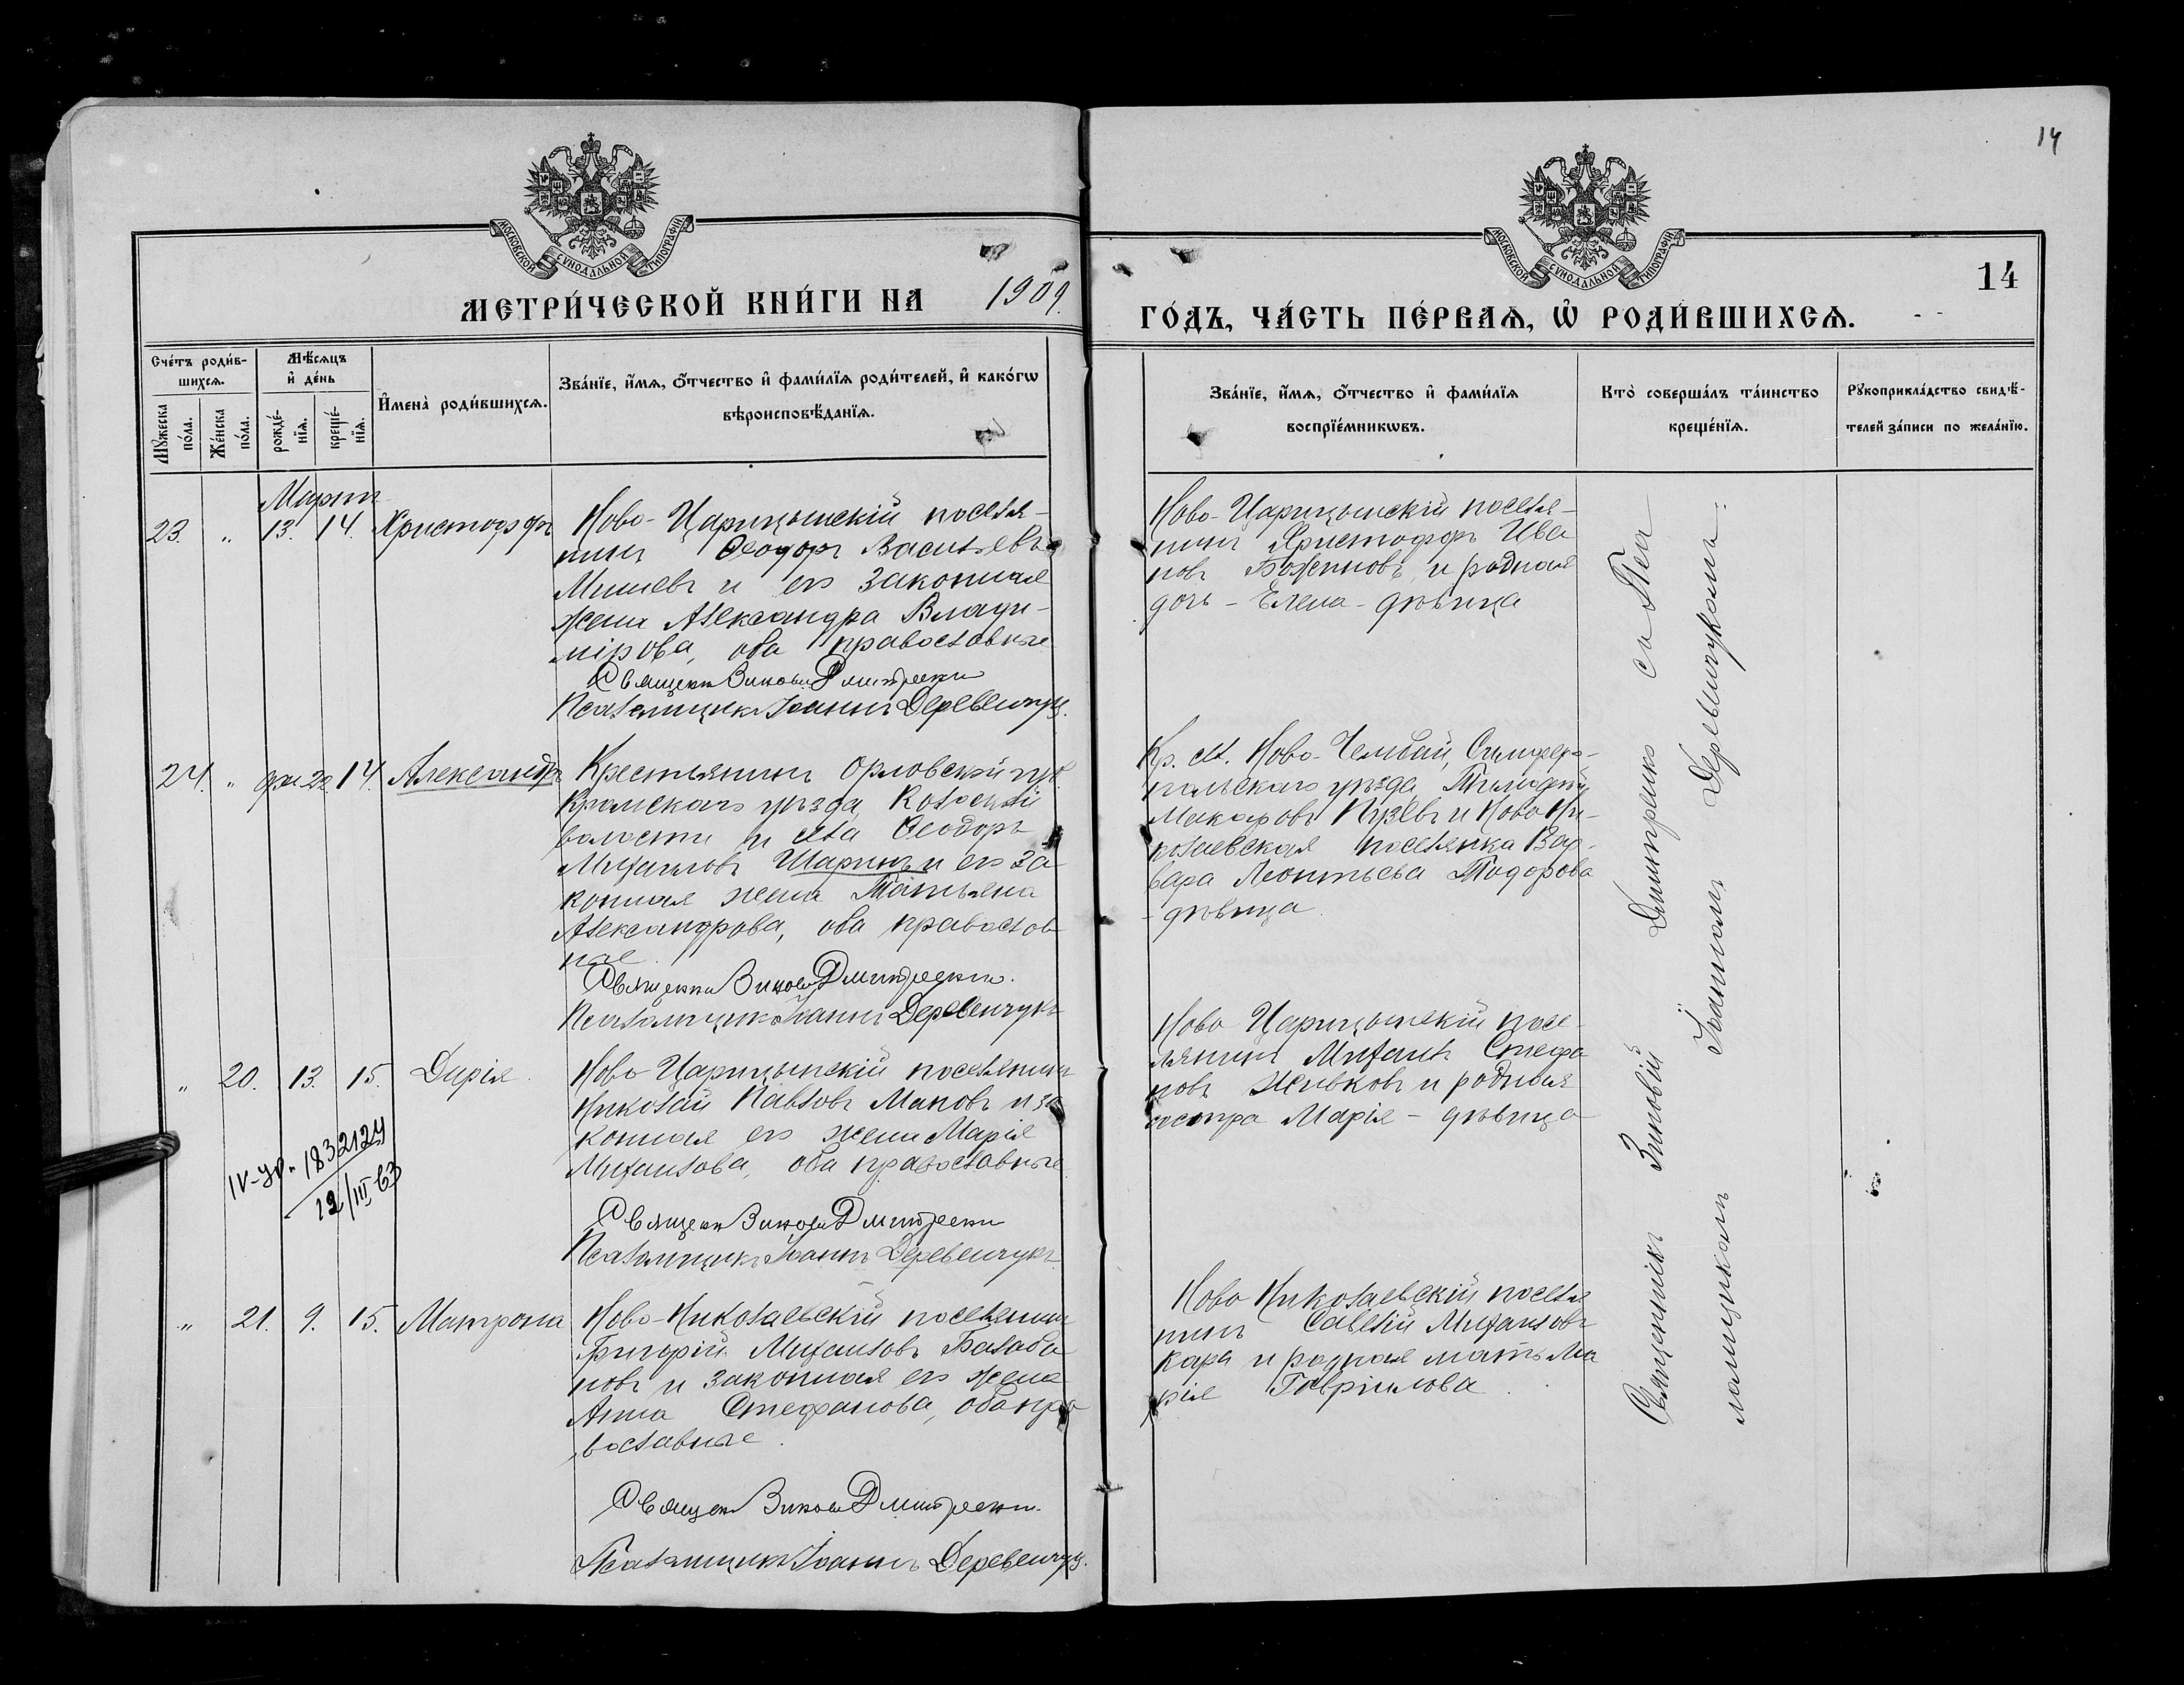 14
МОСКОВСКОЙ СУНОДАЛЬНОЙ ТИПОГРАФІИ
МОСКОВСКОЙ СУНОДАЛЬНОЙ ТИПОГРАФІИ
14
МЕТРИ́ЧЕСКОЙ КНИ́ГИ НА 1909.
ГО́ДЪ, ЧА́СТЬ ПЕ́РВАѦ, Ѡ РОДИ́ВШИХСѦ.
Сче́тъ роди́в-
шихсѧ.
Мꙋ́жеска по́ла.
Же́нска по́ла.
Мѣ́сѧцъ
и҆ де́нь
рожде́-
нїѧ.
креще́-
нїѧ.
И҆мена̀ роди́вшихсѧ.
Зва́нїе, и҆́мѧ, ѻ҆́тчество и҆ фами́лїѧ роди́телей, и҆ како́гѡ
вѣроисповѣ́данїѧ.
Зва́нїе, и҆́мѧ, ѻ҆́тчество и҆ фами́лїѧ
воспрїе́мникѡвъ.
Кто̀ соверша́лъ та́инство
креще́нїѧ.
Рꙋкоприкла́дство свидѣ́-
телей за́писи по жела́нїю.
Мартъ
23. " 13. 14. Христофоръ
Ново-Царицынскій поселя-
нинъ Ѳеодоръ Васильевъ
Мишевъ и его законная
жена Александра Влади-
мірова, оба православные
Священ Зиновій Дмитренко
Псаломщикъ Іоаннъ Деревенчук
Ново-Царицынскій поселя-
нинъ Христофоръ Ива
новъ Боженновъ и родная
дочь - Елена - дѣвица
24. " фев. 22 14. Александръ
Крестьянинъ Орловской губ
Кромскаго уѣзда,
волости и села Ѳеодоръ
Михаиловъ Шаринъ и его за
конная жена Татьяна
Александрова, оба православ
ные.
Священни Зиновій Дмитренко.
Псаломщикъ Іоаннъ Деревенчукъ
Кр. сел. Ново-Челибай, Симферо-
польскаго уѣзда, Тимофей
Макаровъ Пузевъ и Ново Ни-
колаевская поселянка Вар-
вара Леонтьева Тодорова
- дѣвица.
" 20. 13. 15. Дарія
Ново Царицынскій поселянинъ
Николай Павловъ Мановъ и за
конная его жена Марія
Михаилова, оба православные
Священ Зиновій Дмитренко
Псаломщикъ Іоаннъ Деревенчукъ
IV-УР № 1832124
12/III 63
Ново Царицынскій посе-
лянинъ Михаилъ Стефа
новъ Живковъ и родная
сестра Марія - дѣвица
" 21. 9. 15. Матрона
Ново-Николаевскій поселянинъ
Григорій Михаиловъ Балаба
новъ и законная его жена
Анна Стефанова, оба пра
вославные.
Священ Зиновій Дмитренко.
Псаломщикъ Іоаннъ Деревенчук
Ново Николаевскій поселя
нинъ Савелій Михаиловъ
Кара и родная мать Ма
рія Гавріилова.
Священникъ Зиновій Дмитренко съ Пса
ломщикомъ Іоанномъ Деревенчукомъ.